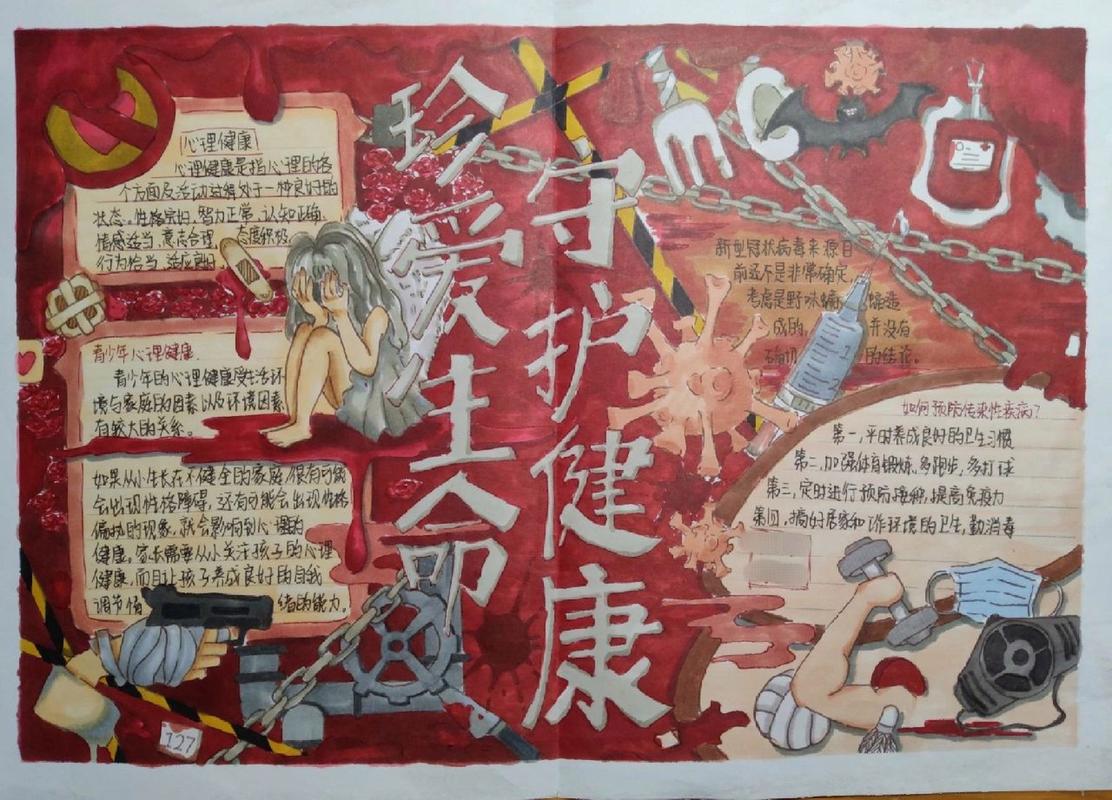 珍爱生命
守护健康
心理健康
心理健康是指心理的各
个方面及活动过程处于一种良好的
状态。性格完好、智力正常、认知正确、
情感适当、意志合理、态度积极、
行为恰当、适应良好
青少年心理健康
青少年的心理健康受生活环
境与家庭的因素以及环境因素
有较大的关系。
如果从小生长在不健全的家庭,很有可能
会出现性格障碍,还有可能会出现性格
偏执的现象,就会影响到心理的
健康,家长需要从小关注孩子的心理
健康,而且让孩子养成良好的自我
调节情绪的能力。
127
新型冠状病毒来源目
前还不是非常确定,
考虑是野味蝙
成的, 并没有
确切 的结论。
如何预防传染性疾病?
第一,平时养成良好的卫生习惯
第二,加强体育锻炼,多跑步,多打球
第三,定时进行预防接种,提高免疫力
第四,搞好居家和工作环境的卫生,勤消毒